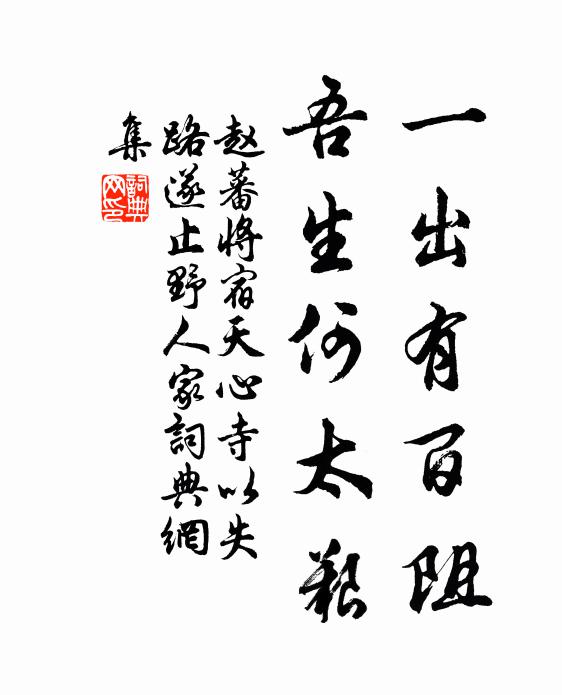 一出有百阻
吾生何太艱
赵蕃將宿天心寺以失
路遂止野人家詞典網
集
詞典
网印